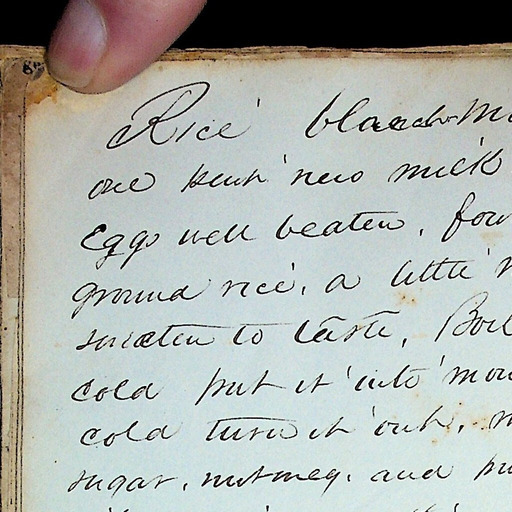 Rice blanch-M
one pint new milk
Eggs well beaten, fou
ground rice, a little
sweeten to taste, Boil
cold put it into mou
cold turn it out,
sugar, nutmeg, and